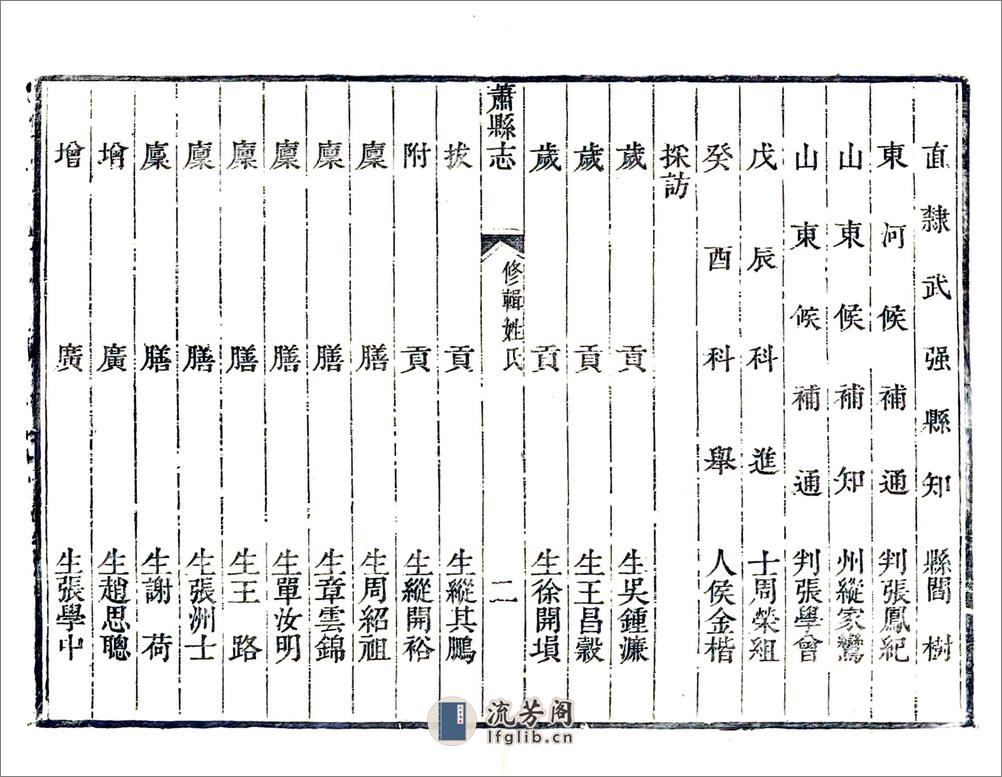 直隸武强縣知縣閻樹
東河候補通判張鳳紀
山東候補知州縱家鸞
山東候補通判張學會
戊辰科進士周榮組
癸酉科舉人侯金楷
採訪
歲貢生吳鍾濂
歲貢生王昌穀
歲貢生徐開塤
蕭縣志 修輯姓氏 二
拔貢生縱其鵬
附貢生縱開裕
廩膳生周紹祖
廩膳生章雲錦
廩膳生單汝明
廩膳生王路
廩膳生張洲士
廩膳生謝荷
增廣生趙思聰
增廣生張學中
流芳阁
lfglib.cn